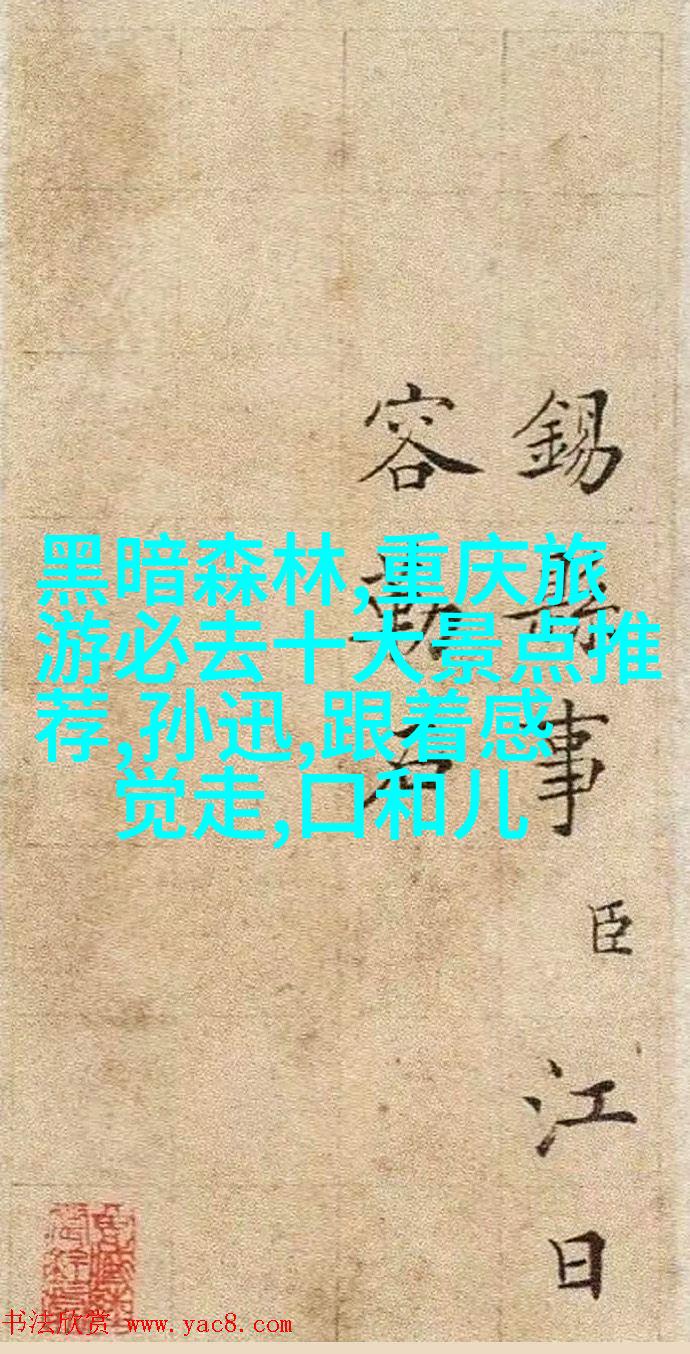 黑暗森林,重庆旅
游必去十大景点推
荐,孙迅,跟着感
觉走,口和儿
錫
事
臣
江
日
容
书法欣赏 www.yac8.com